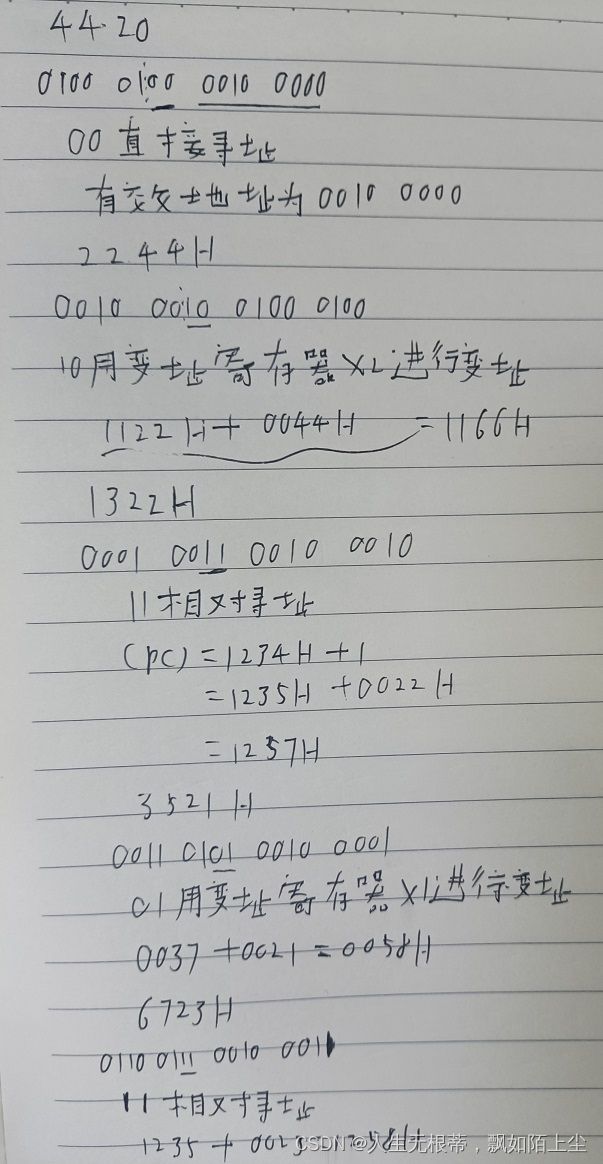 44·20
0100 0100 0010 0000
00直接寻址
有效地址为0010 0000
2244H
0010 0010 0100 0100
10用变址寄存器X2进行变址
1122H+ 0044H =1166H
1322H
0001 0011 0010 0010
11相对寻址
(PC) =1234H +1
=1235H +0022H
=1257H
3521H
0011 0101 0010 0001
01用变址寄存器X1进行变址
0037 +0021 = 0058H
6723H
0110 0111 0010 0011
11相对寻址
1235 + 0023 1258H
CSDN @人生无根蒂，飘如陌上尘